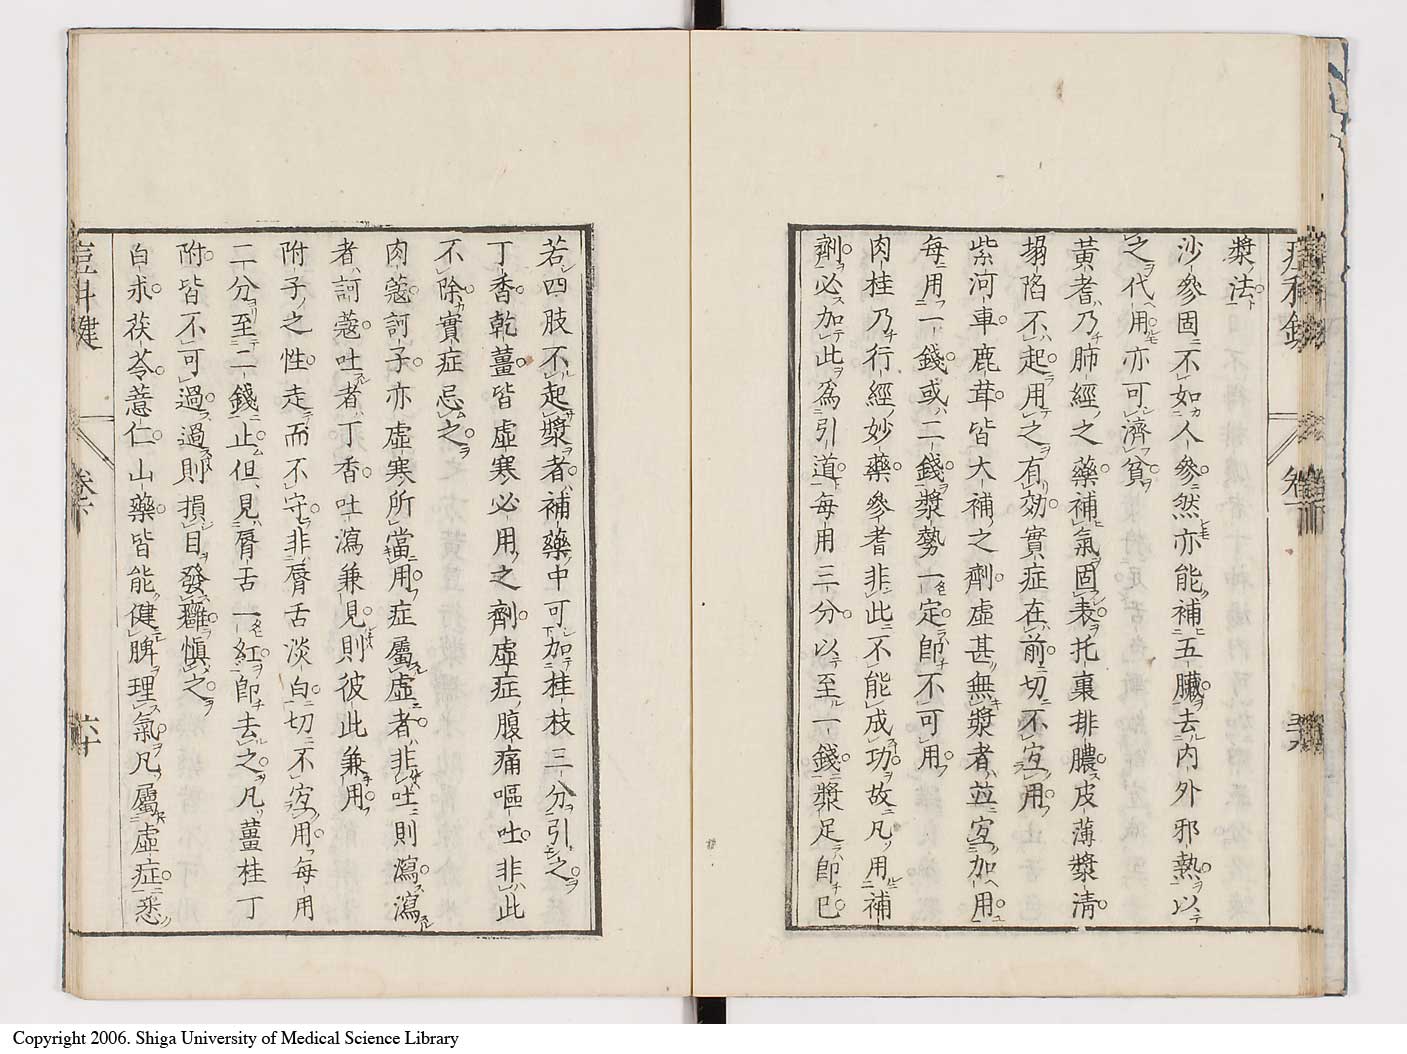 漿法
沙參固不如人參然亦能補五臟去内外邪熱以
之代用亦可濟貧
黃耆乃肺經之藥補氣固表托裏排膿皮薄漿清
塌陷不起用之有効實症在前切不宜用
紫河車鹿茸皆大補之劑虛甚無漿者並宜加用
每用一錢或二錢漿勢一定即不可用
肉桂乃行經妙藥參耆非此不能成功故凡用補
劑必加此爲引道每用三分以至一錢漿足即已
若四肢不起漿者補藥中可加桂枝三分引之
丁香乾薑皆虛寒必用之劑虛症腹痛嘔吐非此
不除實症忌之
肉蔻訶子亦虛寒所當用症屬虛者非吐則瀉瀉
者訶蔻吐者丁香吐瀉兼見則彼此兼用
附子之性走而不守非脣舌淡白切不宜用每用
二分至二錢止但見脣舌一紅即去之凡薑桂丁
附皆不可過過則損目發癰愼之
白朮茯苓薏仁山藥皆能健脾理氣凡屬虛症悉
卷下
六十
Copyright 2006. Shiga University of Medical Science Library